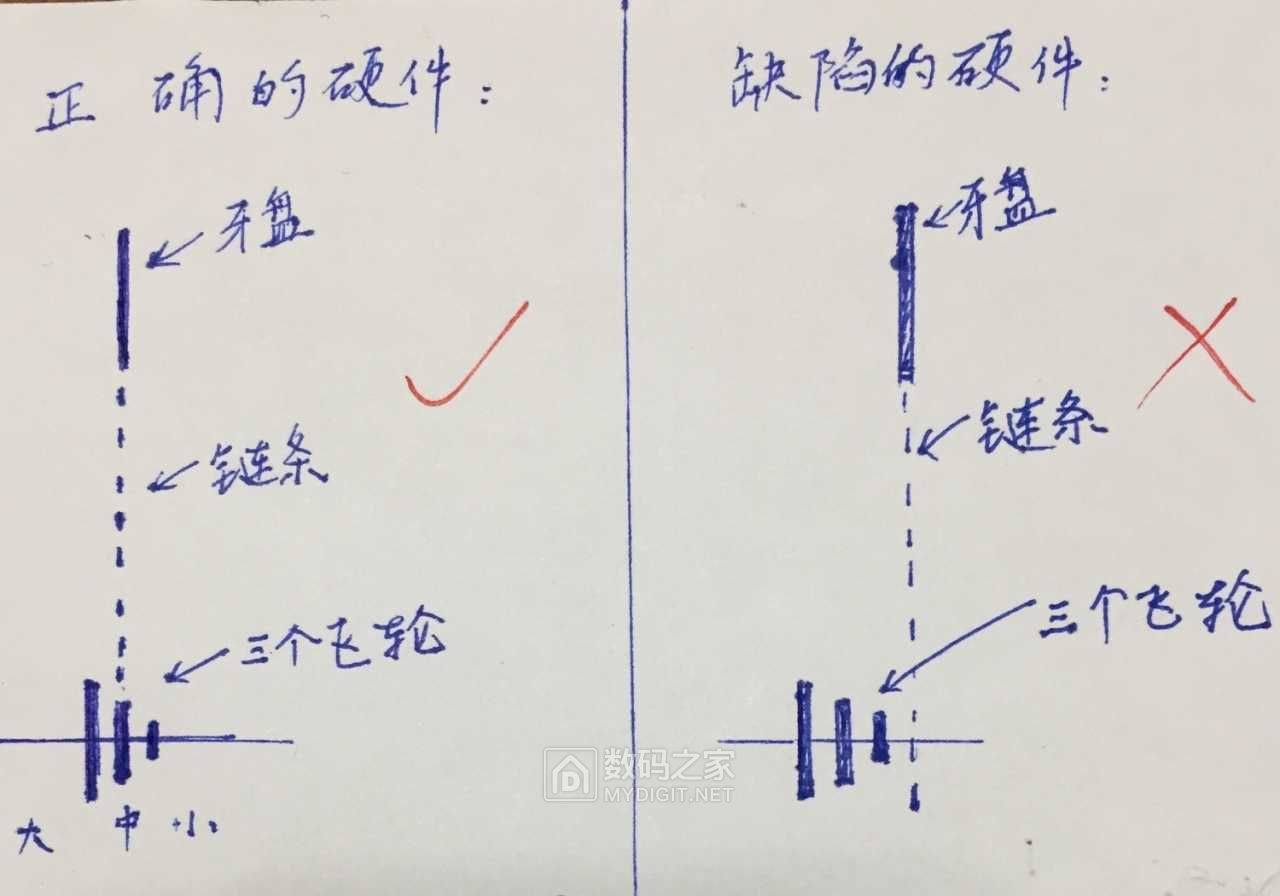 正确的硬件：
牙盘
链条
三个飞轮
大 中 小
缺陷的硬件：
牙盘
链条
三个飞轮
数码之家
MYDIGIT.NET